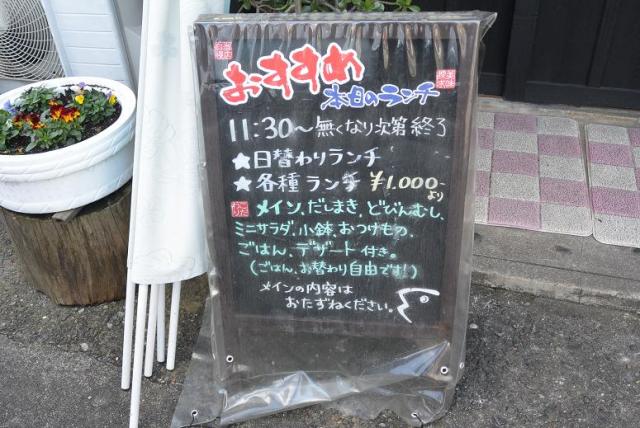 おすすめ
本日のランチ
11:30〜無くなり次第終了
★日替わりランチ
★各種ランチ ¥1.000-より
メイン、だしまき、どびんむし、
ミニサラダ、小鉢、おつけもの、
ごはん、デザート付き。
(ごはん、お替わり自由です!)
メインの内容は
おたずねください。